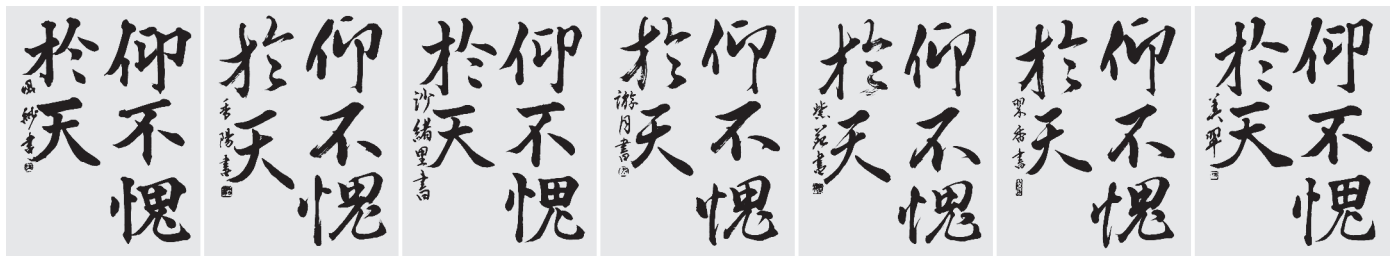 仰不愧
於天
仰不愧
於天
香陽書
仰不愧
於天
沙緒里書
仰不愧
於天
游月書
仰不愧
於天
紫苑書
仰不愧
於天
翠香書
仰不愧
於天
美翠